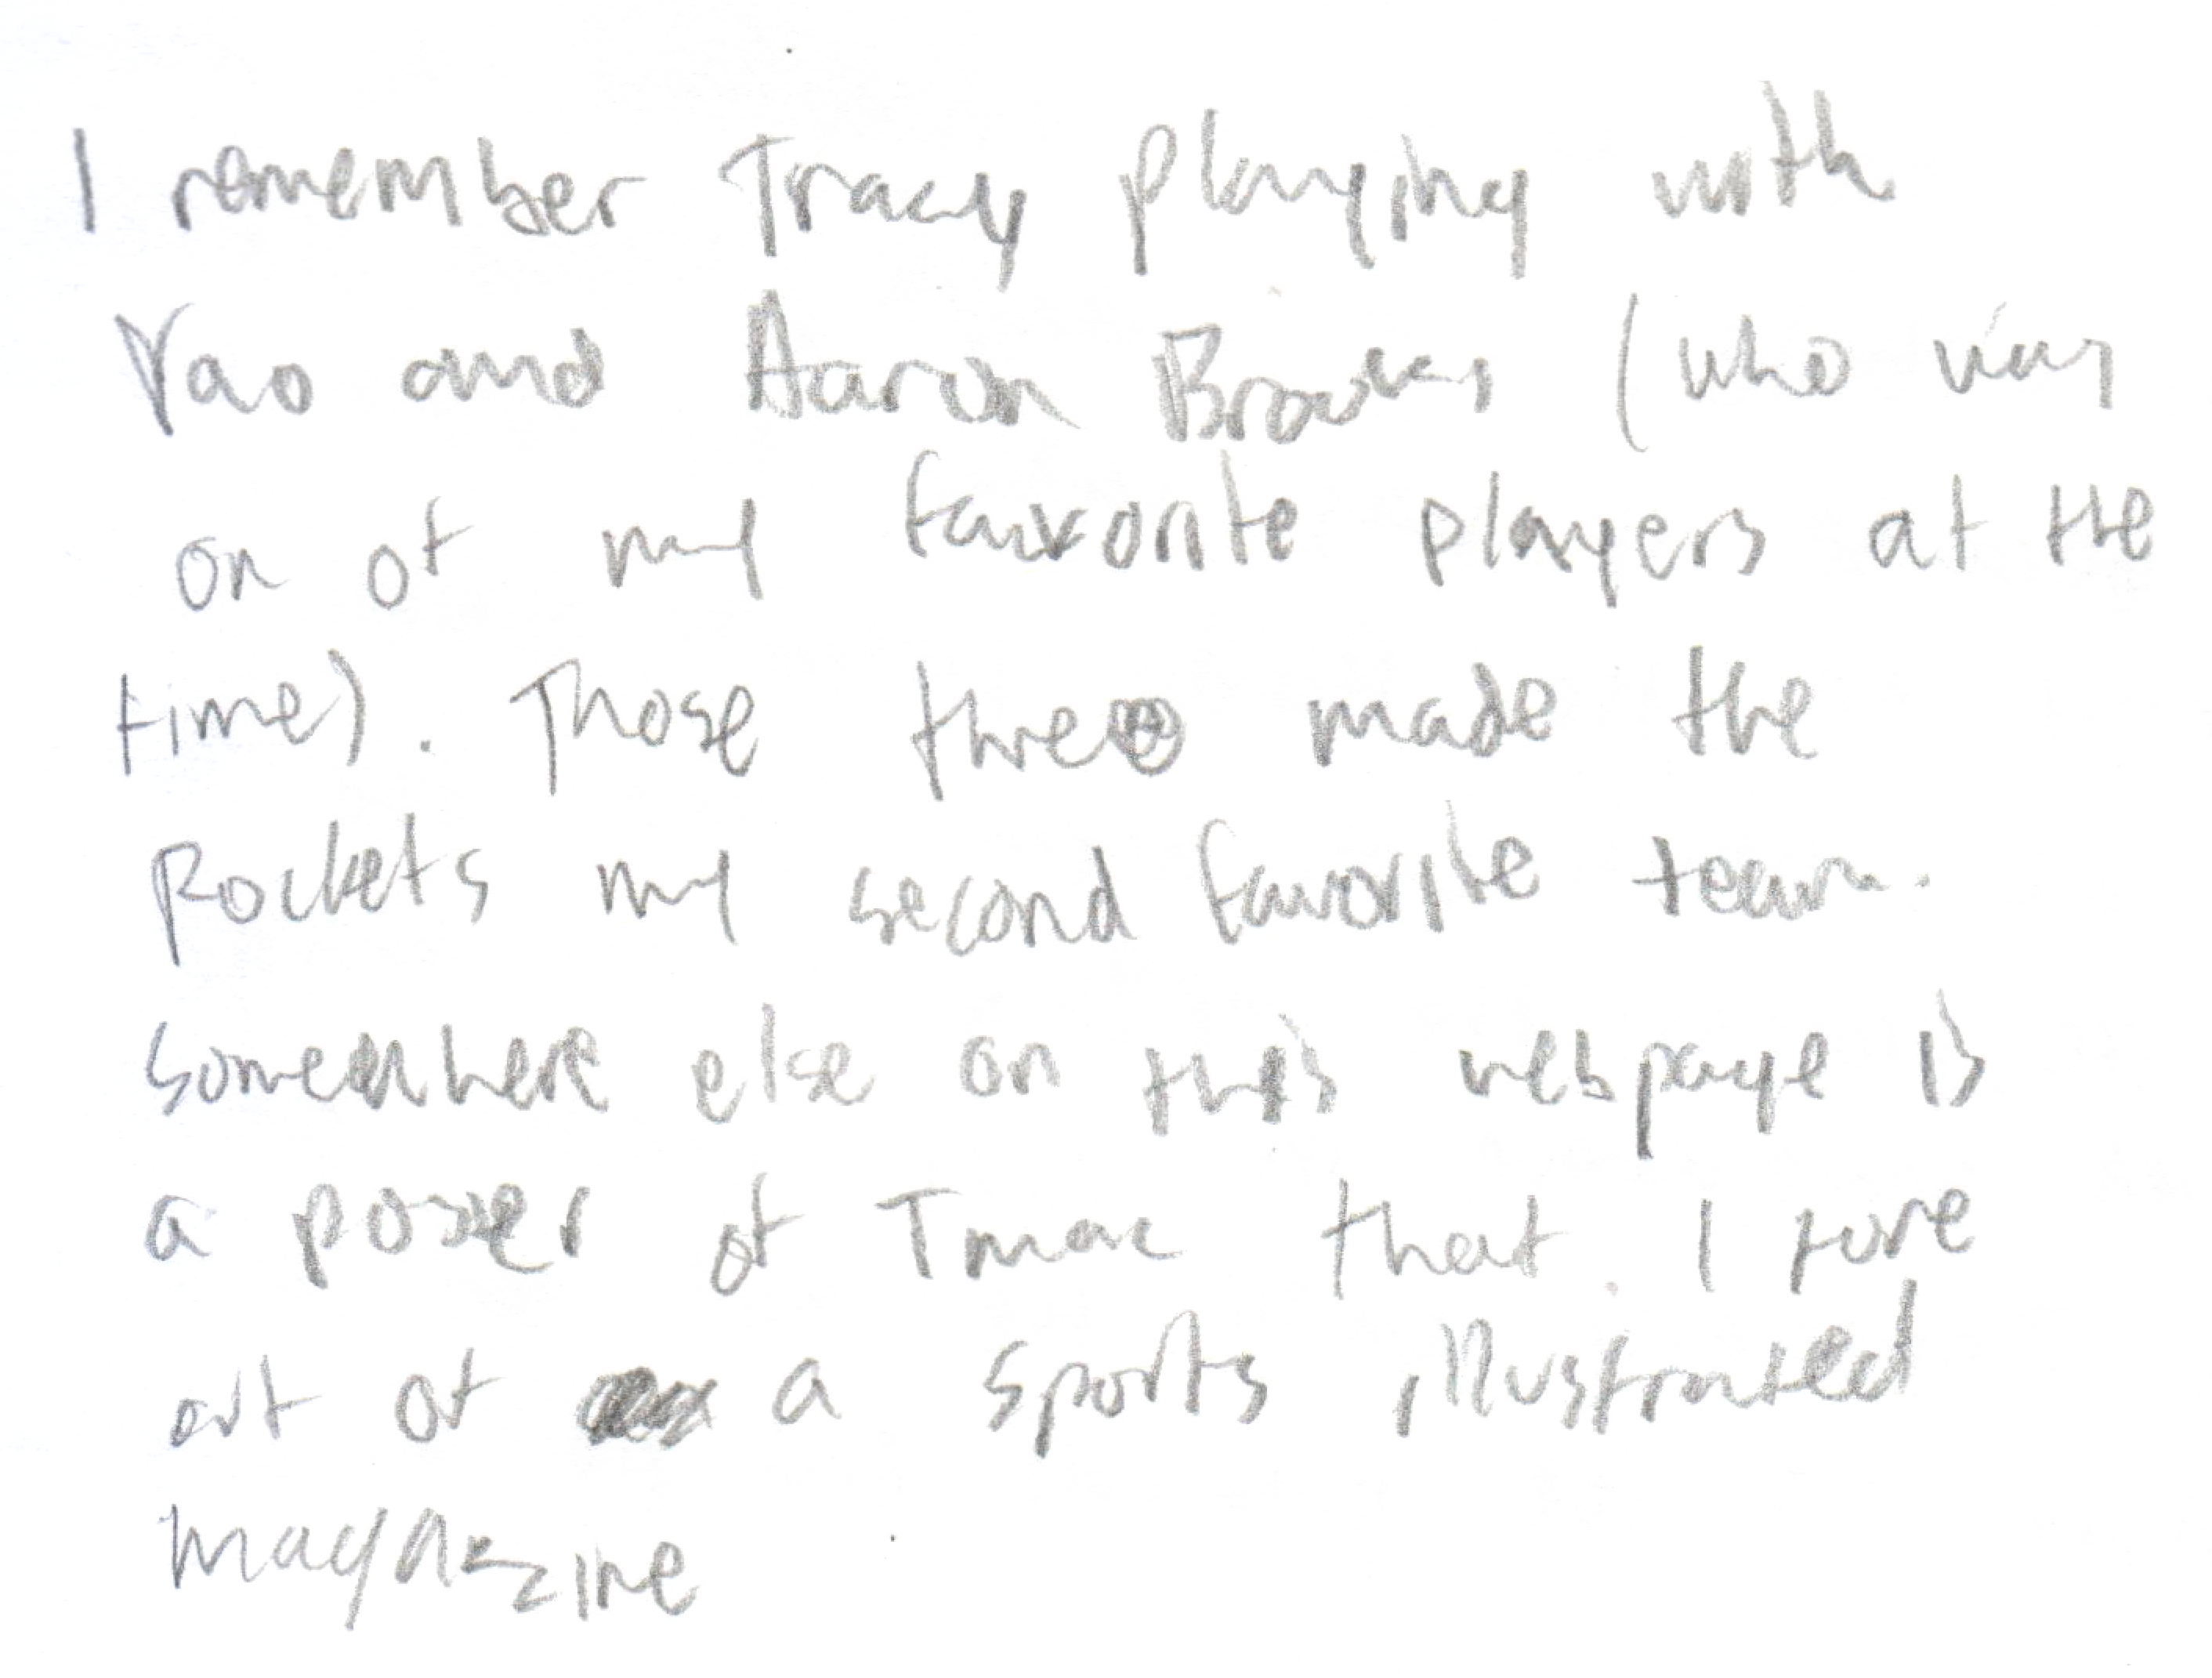 I remember Tracy playing with
Yao and Aaron Brooks (who was
on of my favorite players at the
time). Those three made the
Rockets my second favorite team.
Somewhere else on this webpage is
a poser of Tmac that I tore
out of a Sports illustrated
magazine